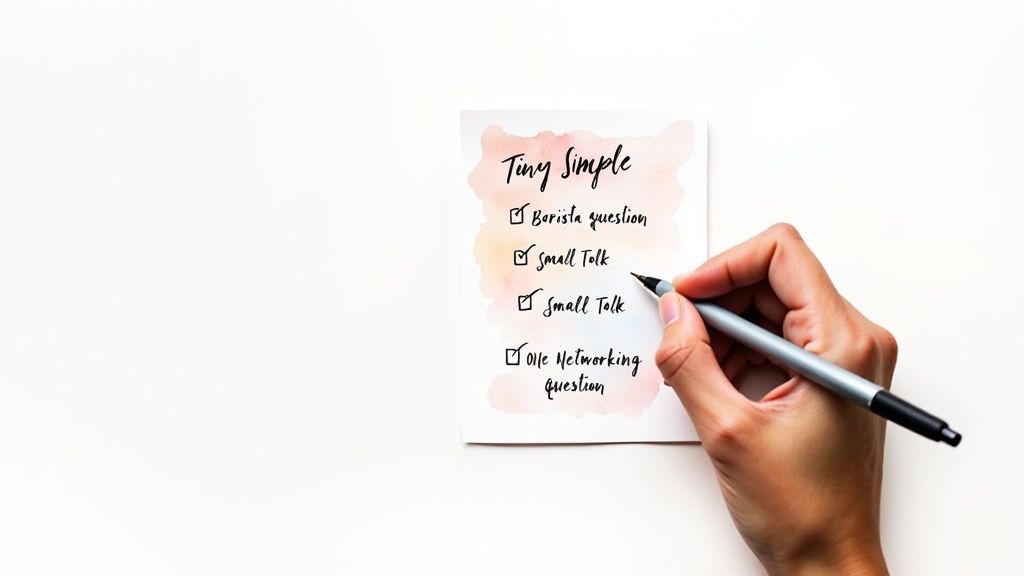 Tiny Simple
Barista question
Small Talk
Small Talk
One Networking
Question